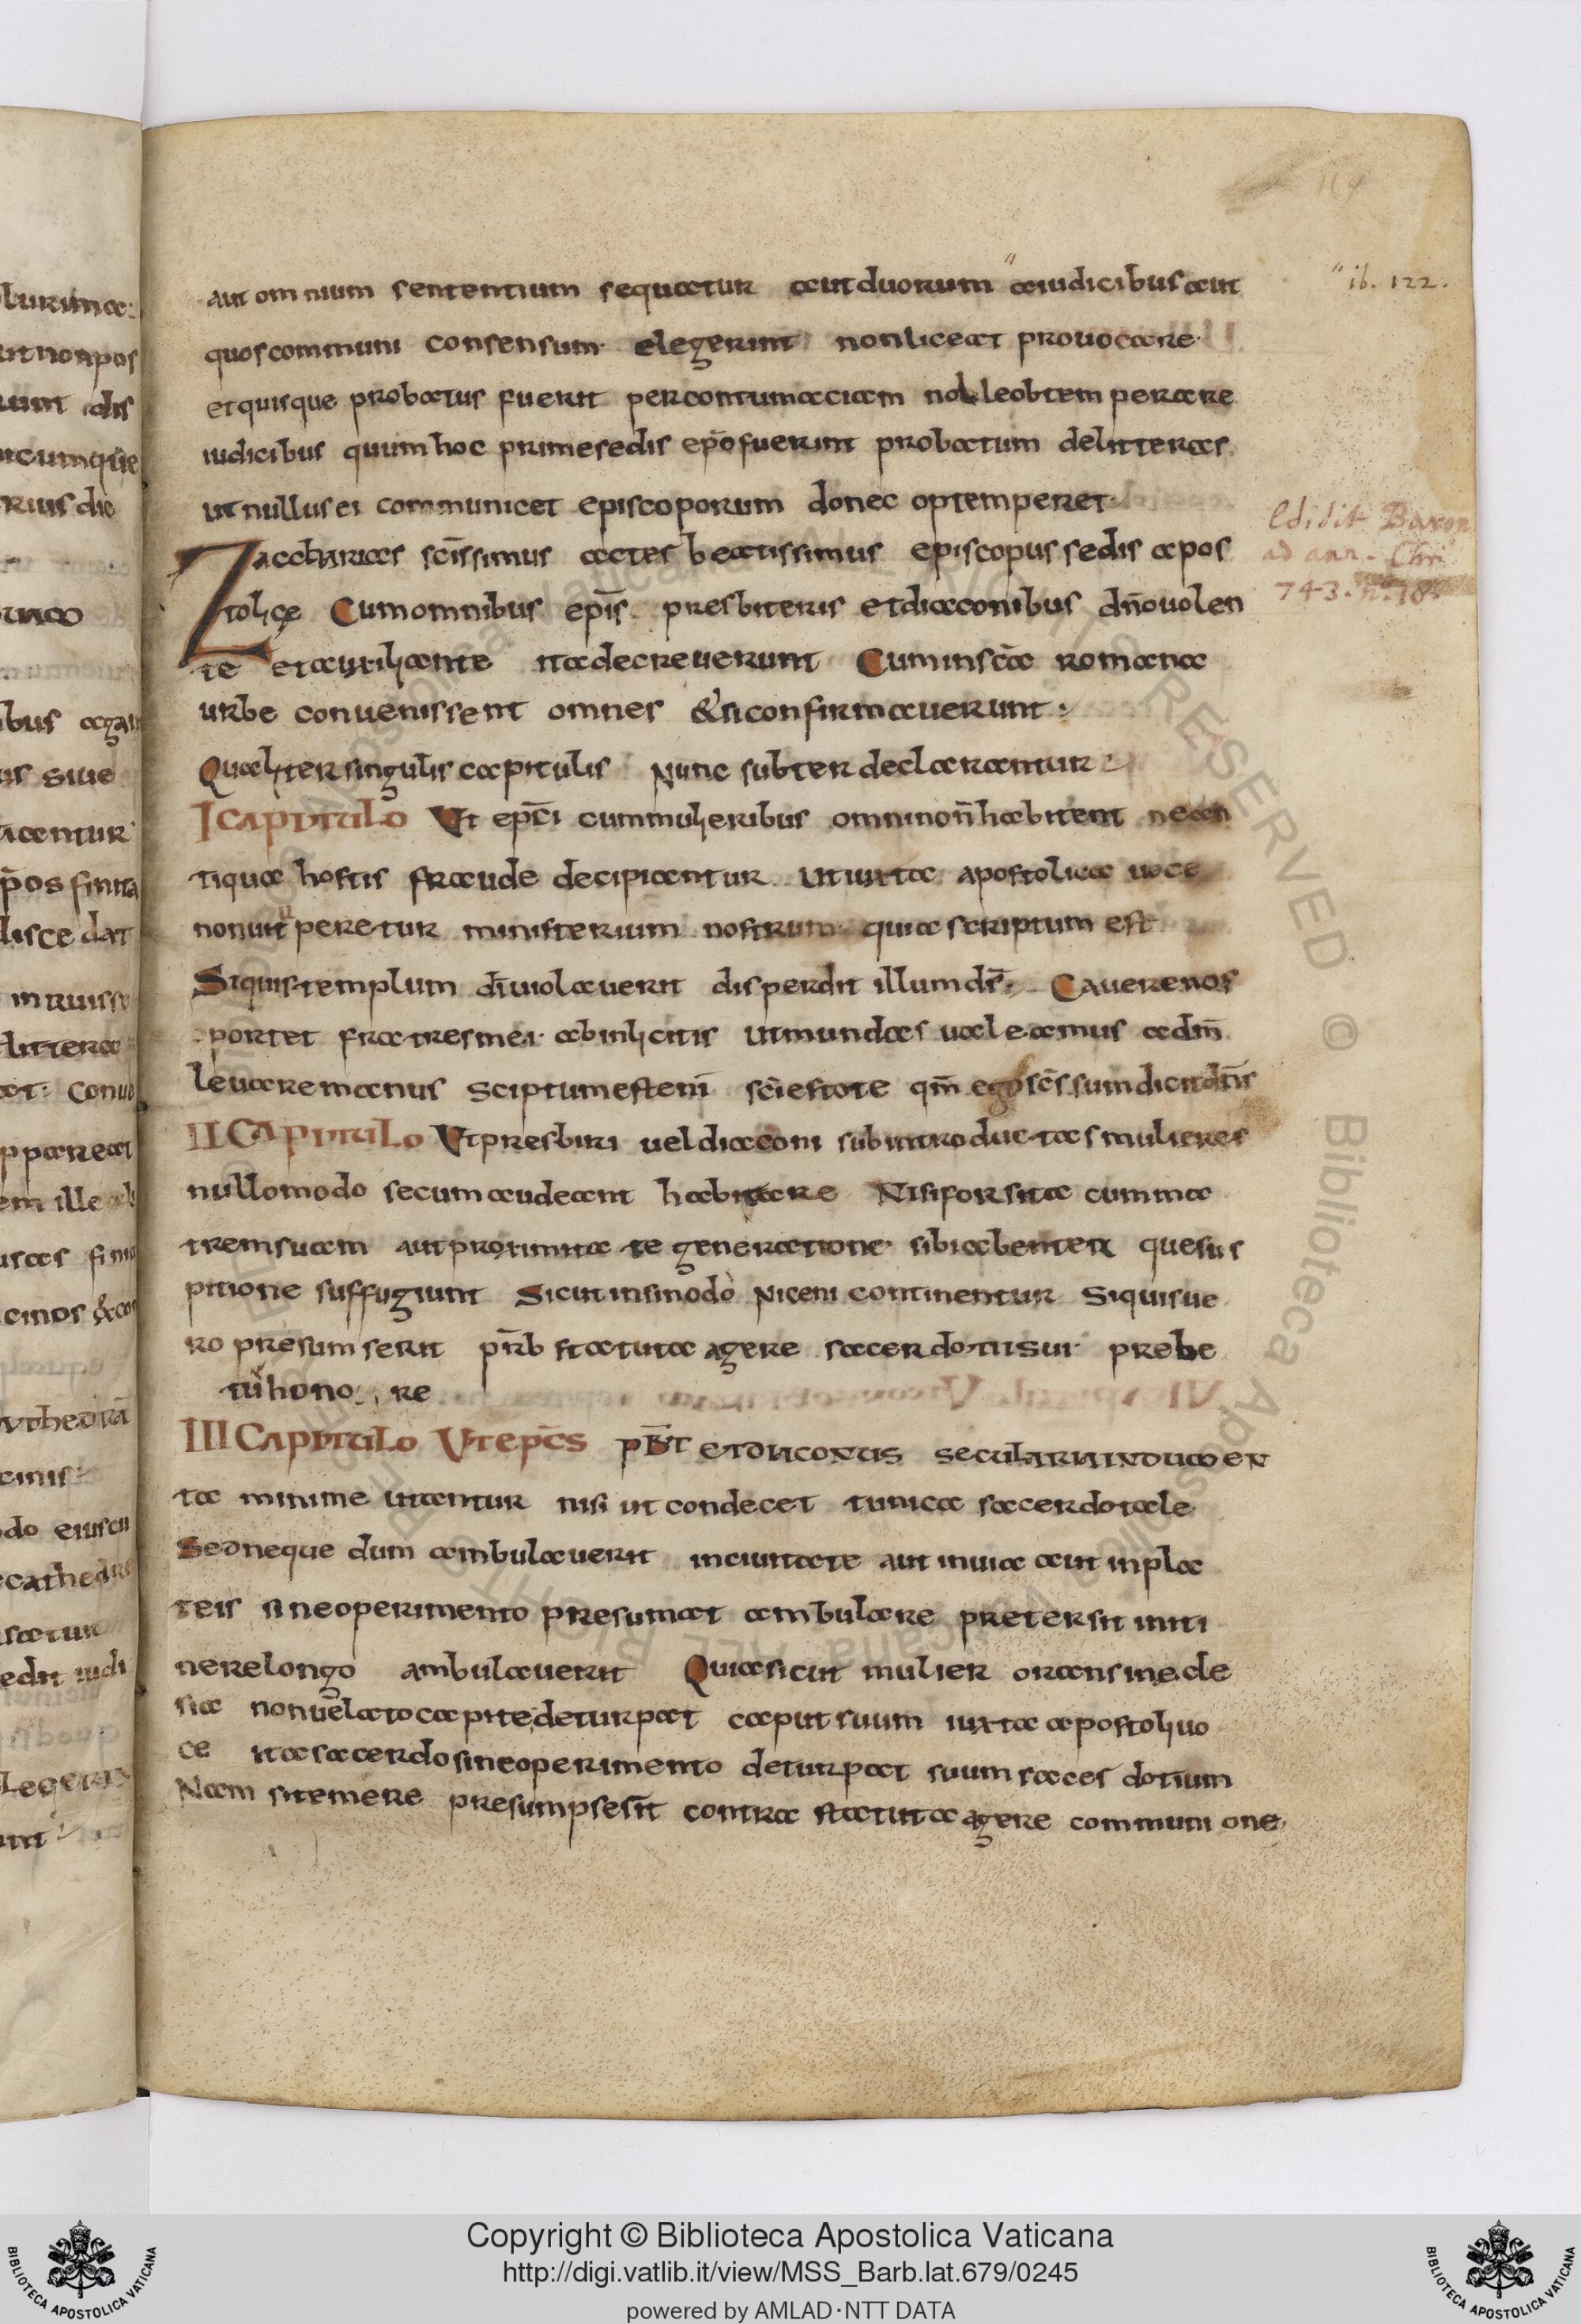 119
aut omnium sententium sequatur aut duorum " aiudicibus aut
quos communi consensum· elegerint non liceat prouocare·
et quisque probatus fuerit per contumaciam nolle obtemperare
iudicibus quum hoc prime sedis ep̄o fuerint probatum de litteras
ut nullus ei communicet episcoporum donec optemperet·
Zaccharias sc̄issimus actes beatissimus episcopus sedis apos
tolice Cum omnibus ep̄is presbiteris et diaconibus dn̄o uolen
te et auxiliante ita decreuerunt Cum in sc̄a romana
urbe conuenissent omnes & si confirmauerunt:
Qualiter singulis capitulis Nunc subter declarantur:
I CAPITULO Ut ep̄ci cum mulieribus omni non̄ habitent ne an
tiqua hostis fraude decipiantur ut iuxta apostolica uoce
non uituperetur ministerium nostrum quia scriptum est
Si quis templum dī uiolauerit disperdit illum ds̄· Cauere nos
oportet fratres mei· ab inlicitis ut mundas ualeamus ad dm̄
leuare manus sciptum est enī sc̄i estote qm̄ ego sc̄s sum dicit dn̄s
II CAPITULO Ut presbiri uel diaconi subintroductas mulieres
nullo modo secum audeant habitare Nisi forsita cum ma
trem suam aut proximita te generatione· sibi abentex que sus
pitione suffugiunt Sicut in sinodo Niceni continentur Siquis ue
ro presumserit pr̄b statuta agere sacerdotii sui· prebe
tur honore
III CAPITULO Ut ep̄cs pb̄t et diaconus secularia induamen
ta minime utantur nisi ut condecet tunica sacerdotale
Sed neque dum ambulauerit in ciuitate aut in uia aut in pla
teis sine operimento presumat ambulare preter si in iti
nere longo ambulauerit Quia sicut mulier orans in ecle
sia non uelato capite deturpat caput suum iuxta apostoli uo
ce ita sacerdos sine operimento deturpat suum sacesdotium
Nam si temere presumpseri̅t contra statuta agere communione
" ib. 122.
Edidit Baron
ad ann. Chri
743. n. 18.
Copyright © Biblioteca Apostolica Vaticana
http://digi.vatlib.it/view/MSS_Barb.lat.679/0245
powered by AMLAD·NTT DATA
BIBLIOTECA APOSTOLICA VATICANA
BIBLIOTECA APOSTOLICA VATICANA